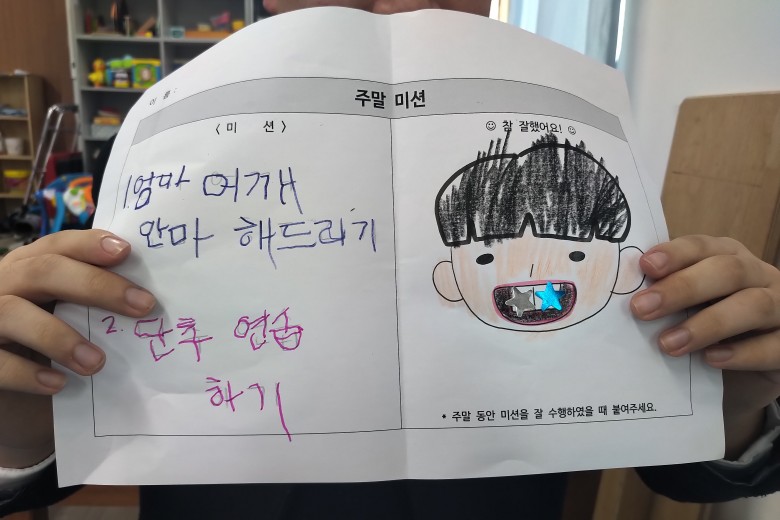 이 름 :
주말 미션
< 미 션 >
☺ 참 잘했어요! ☺
1. 엄마 어깨
안마 해드리기
2. 단추 연습
하기
* 주말 동안 미션을 잘 수행하였을 때 붙여주세요.